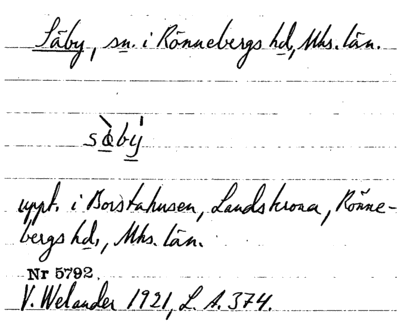 Säby, sn. i Rönnebergs hd, Mhs. län.
sàbý
uppt. i Borstahusen, Landskrona, Rönne-
bergs hd., Mhs. län.
Nr 5792.
V. Welander 1921, L. A. 374.